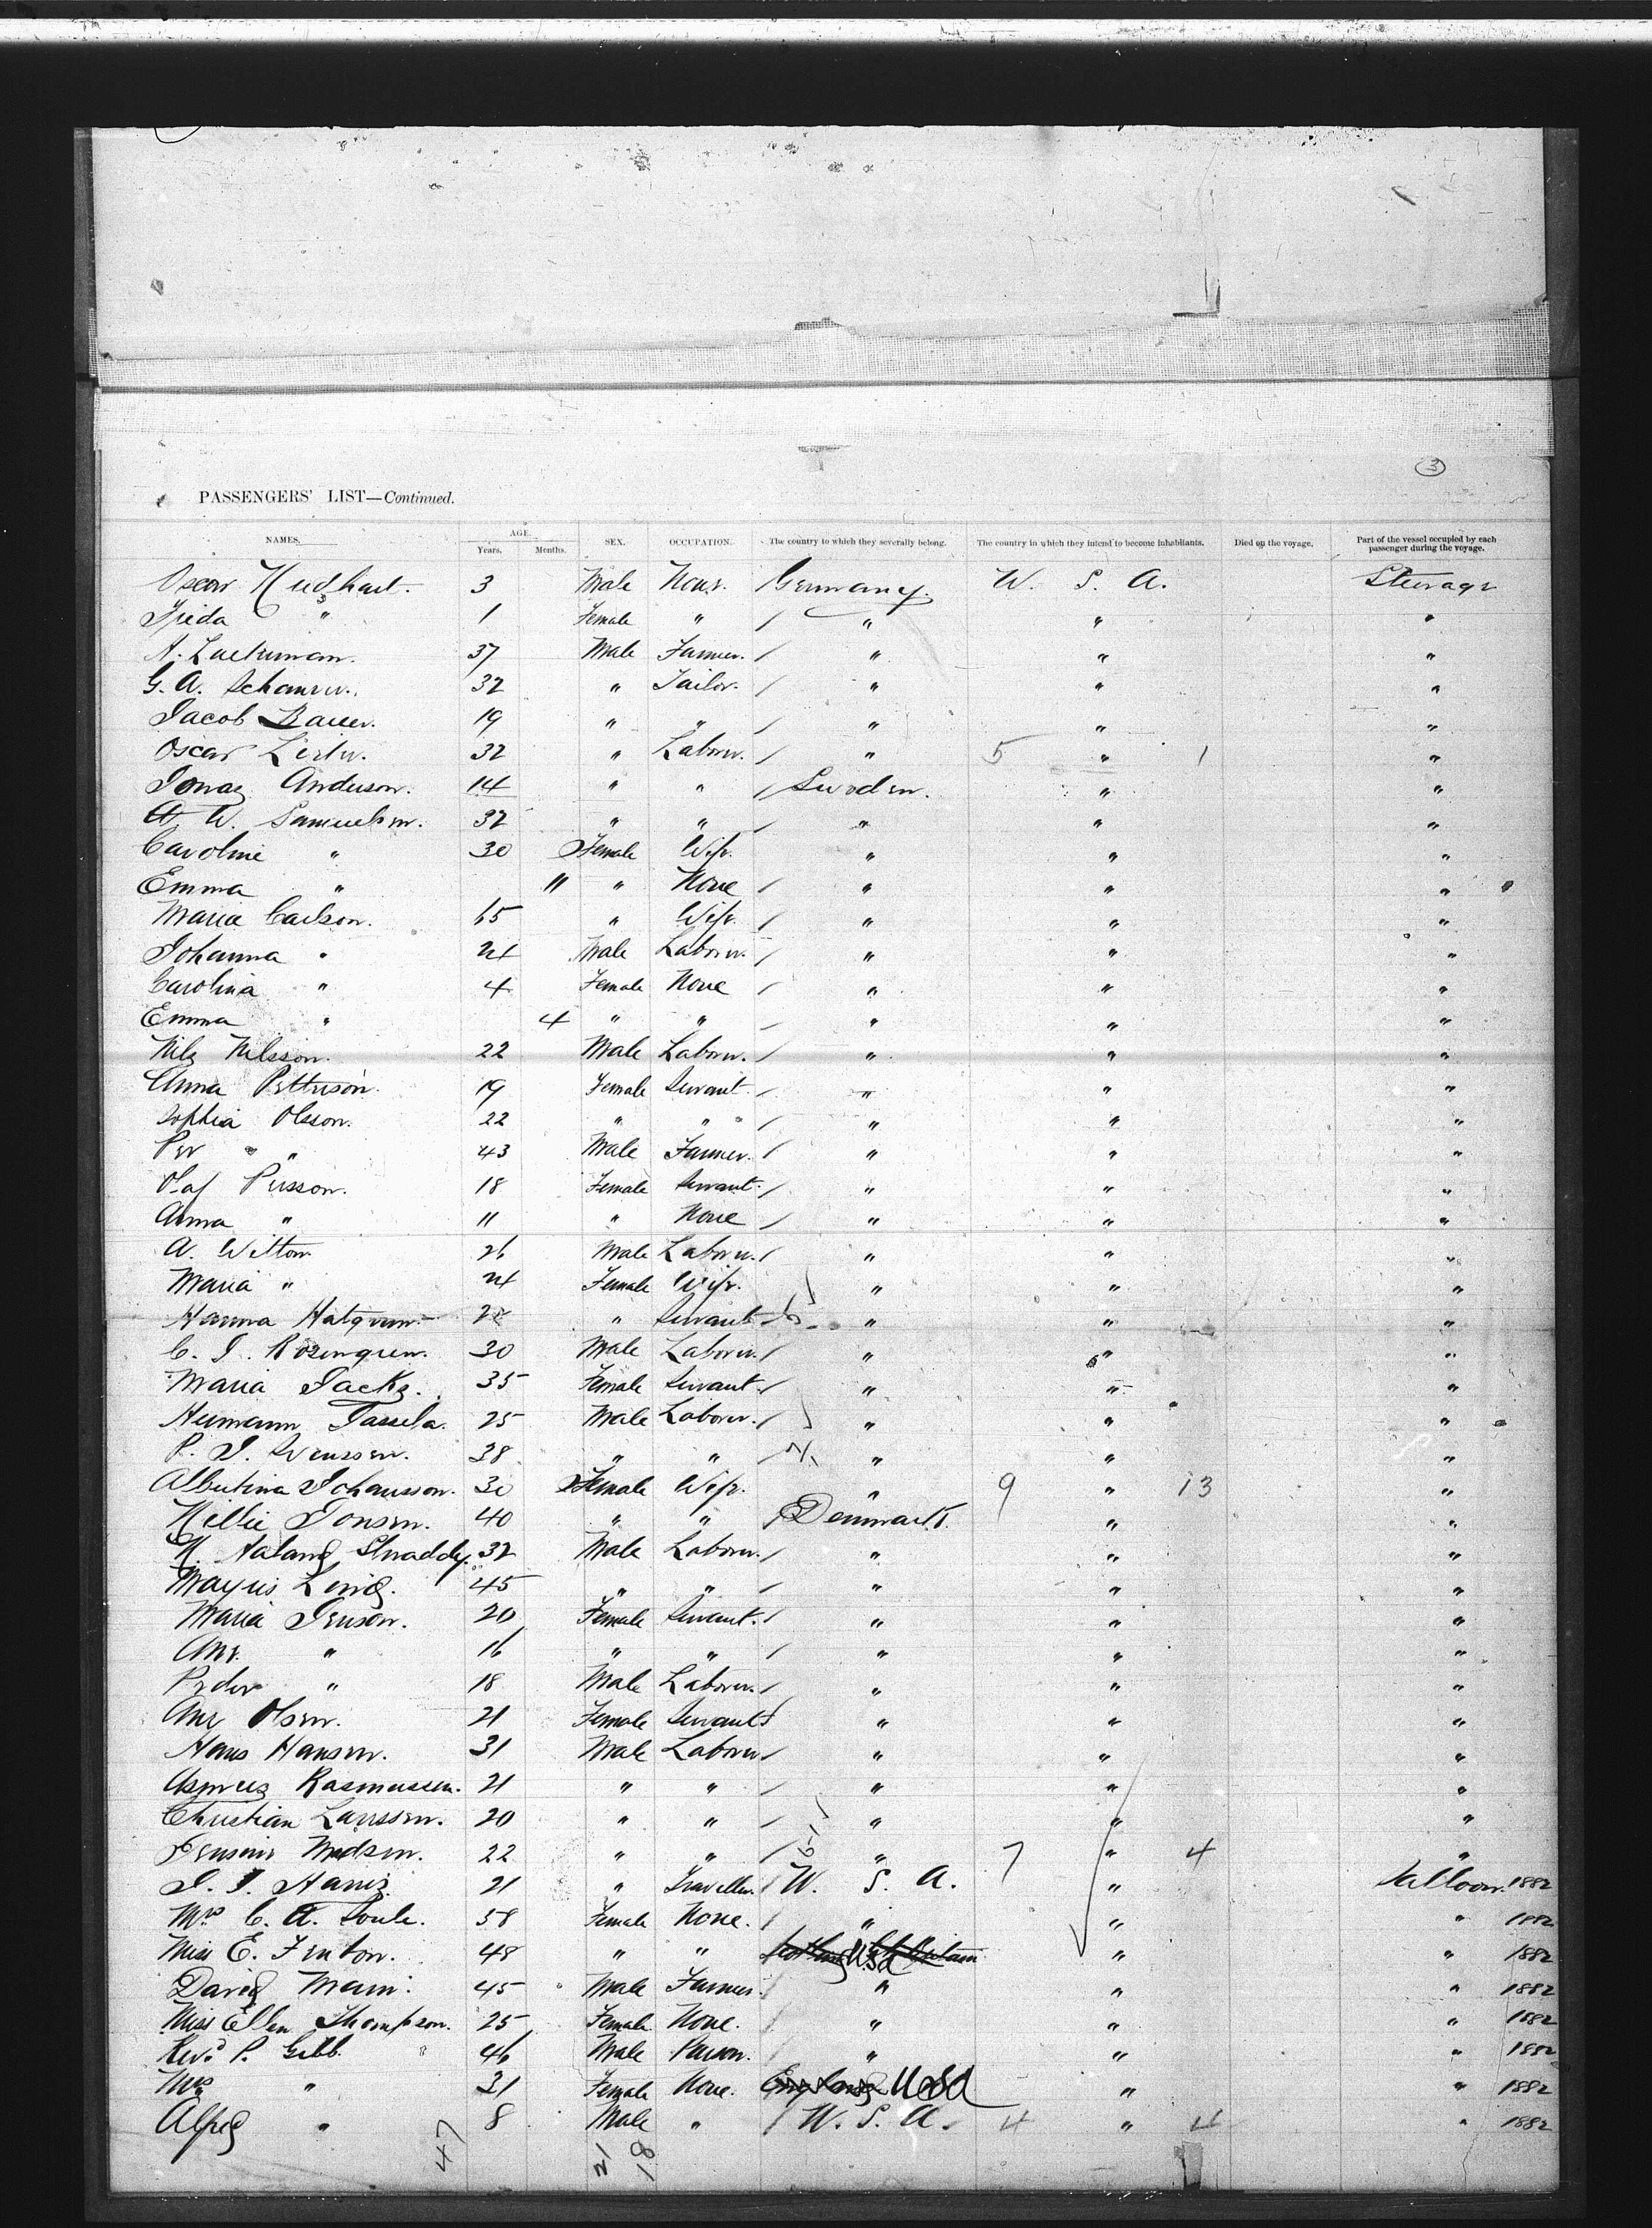 3
PASSENGERS' LIST—Continued.
NAMES. AGE. Years. Months. SEX. OCCUPATION. The country to which they severally belong. The country in which they intend to become inhabitants. Died on the voyage. Part of the vessel occupied by each passenger during the voyage.
Oscar 3 Male None. Germany. U. S. A. Steerage
Frida " 1 Female " / " " "
A. Zuckerman. 37 Male Farmer. / " " "
G. A. 32 " Tailor. / " " "
Jacob Bauer. 19 " " / " " "
Oscar 32 " Laborer. / " 5 " 1 "
Jonas Anderson. 14 " " / Sweden. " "
W. Samuelson. 32 " " / " " "
Caroline " 30 Female Wife. " " "
Emma " 11 " None / " " "
Maria Carlson. 65 " Wife. / " " "
Johanna " 24 Male Laborer. / " " "
Carolina " 4 Female None / " " "
Emma " 4 " " / " " "
Nils Nilsson. 22 Male Laborer. / " " "
Anna Petterson. 19 Female Servant. / " " "
Sophia Olsson. 22 " " / " " "
Per " 43 Male Farmer. / " " "
Olaf Persson. 18 Female Servant. / " " "
Anna " 11 " None / " " "
A. Witton 26 Male Laborer. / " " "
Maria " 24 Female Wife. " " "
Hanna 28 " Servant " " "
C. J. Rosengren. 30 Male Laborer. / " " "
Maria Jacks. 35 Female Servant. / " " "
Hermann Tassela. 25 Male Laborer. / " " "
P. J. Svensson. 38 " " / " " "
Albertina Johansson. 30 Female Wife. " 9 " 13 "
Nillie Jonsen. 40 " " / Denmark. " "
N. 32 Male Laborer. / " " "
45 " " / " " "
Maria Jenson. 20 Female Servant. / " " "
Ane. " 16 " " / " " "
Peder " 18 Male Laborer. / " " "
Ane Olsen. 21 Female Servant / " " "
Hans Hansen. 31 Male Laborer / " " "
Asmus Rasmussen. 21 " " / " " "
Christian Laurssen. 20 " " / " " "
Madsen. 22 " " / " 7 " 4 "
J. J. Harris 21 " Traveller. / U. S. A. " Salloon. 1882
Mrs. C. A. Soule. 58 Female None. / " " " 1882
Miss E. Fenton. 48 " " USA " " 1882
David 45 Male Farmer. / " " " 1882
Miss Ellen Thompson. 25 Female None. / " " " 1882
Revd. P. Gibb. 46 Male Parson. / " " " 1882
Mrs " 31 Female None. England USA " " 1882
Alfred " 8 Male " / U. S. A. 4 " 4 " 1882
47 21 18